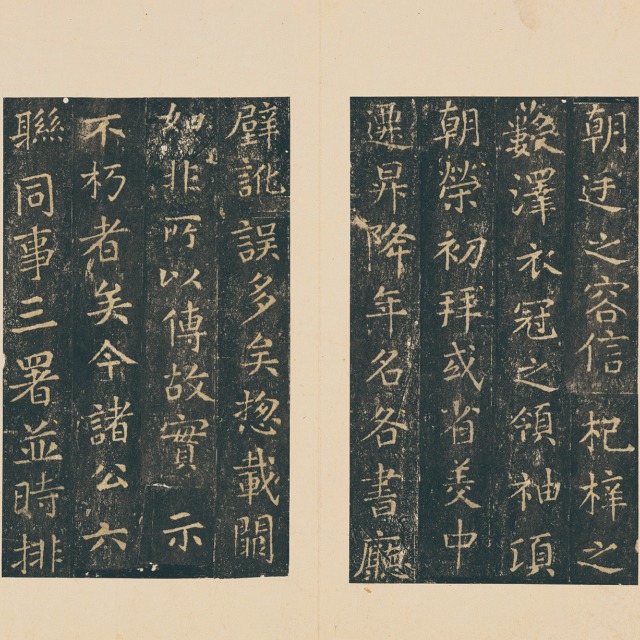 朝廷之容信杞梓之
藪澤衣冠之領袖項
朝榮初拜或省美中
遷昇降年名各書廳
壁訛誤多矣惣載闕
如非所以傳故實示
不朽者矣今諸公六
聯同事三署並時排